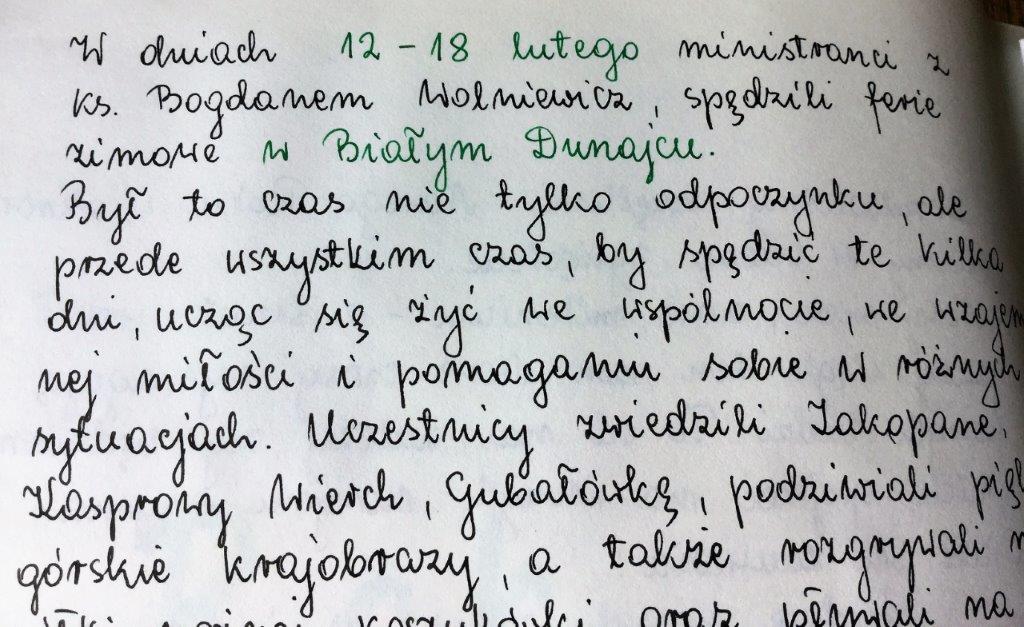 W dniach 12 - 18 lutego ministranci z
ks. Bogdanem Wolniewicz, spędzili ferie
zimowe w Białym Dunajcu.
Był to czas nie tylko odpoczynku, ale
przede wszystkim czas, by spędzić te kilka
dni, ucząc się żyć we wspólnocie, we wzajem
nej miłości i pomaganiu sobie w różnych
sytuacjach. Uczestnicy zwiedzili Zakopane,
Kasprowy Wierch, Gubałówkę, podziwiali
górskie krajobrazy, a także rozgrywali
koszykówki oraz pływali na